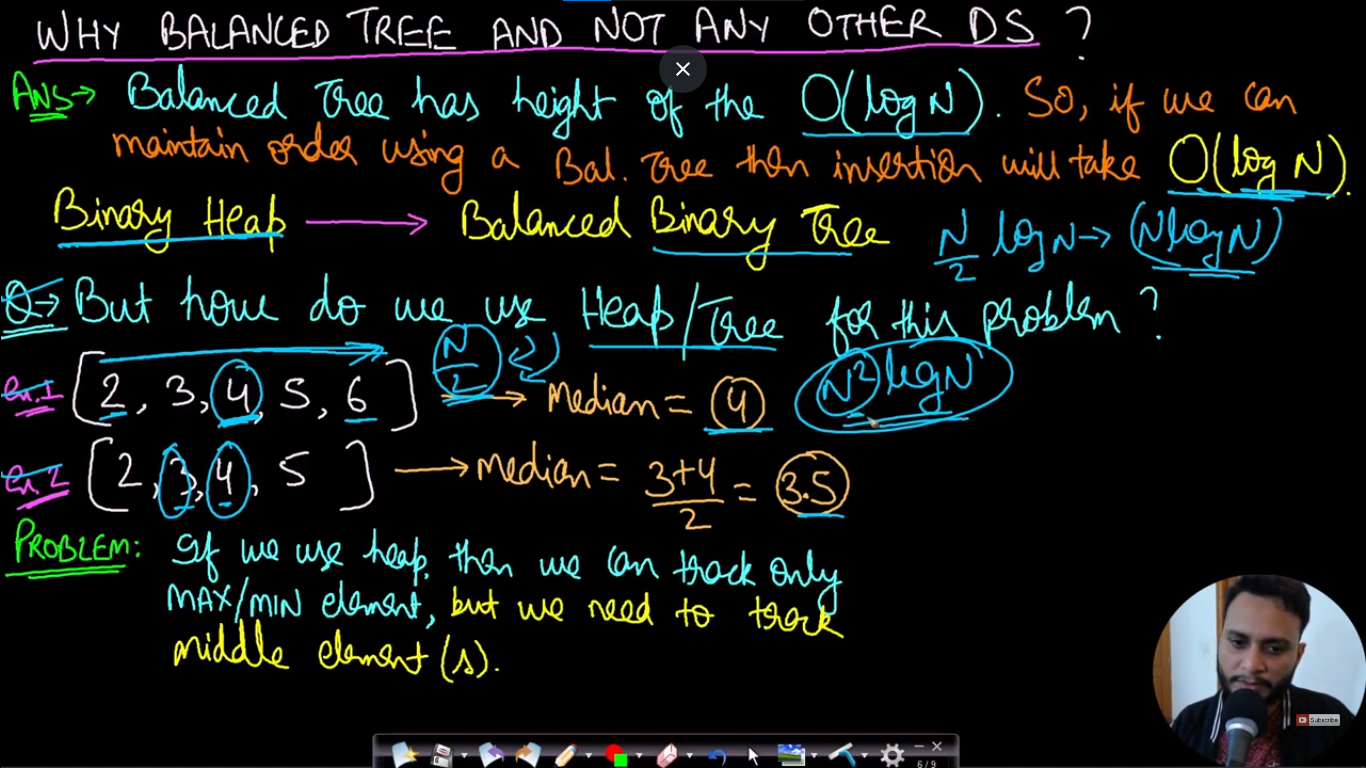 WHY BALANCED TREE AND NOT ANY OTHER DS ?
ANS→ Balanced Tree has height of the O(log N). So, if we can
maintain order using a Bal. Tree then insertion will take O(log N).
Binary Heap → Balanced Binary Tree N/2 log N → (N log N)
Q→ But how do we use Heap/Tree for this problem ?
Ex.1 [2, 3, 4, 5, 6] N/2 → Median = 4 N² log N
Ex.2 [2, 3, 4, 5 ] → Median = 3+4/2 = 3.5
PROBLEM: If we use heap, then we can track only
MAX/MIN element, but we need to track
middle element(s).
Subscribe
6 / 9